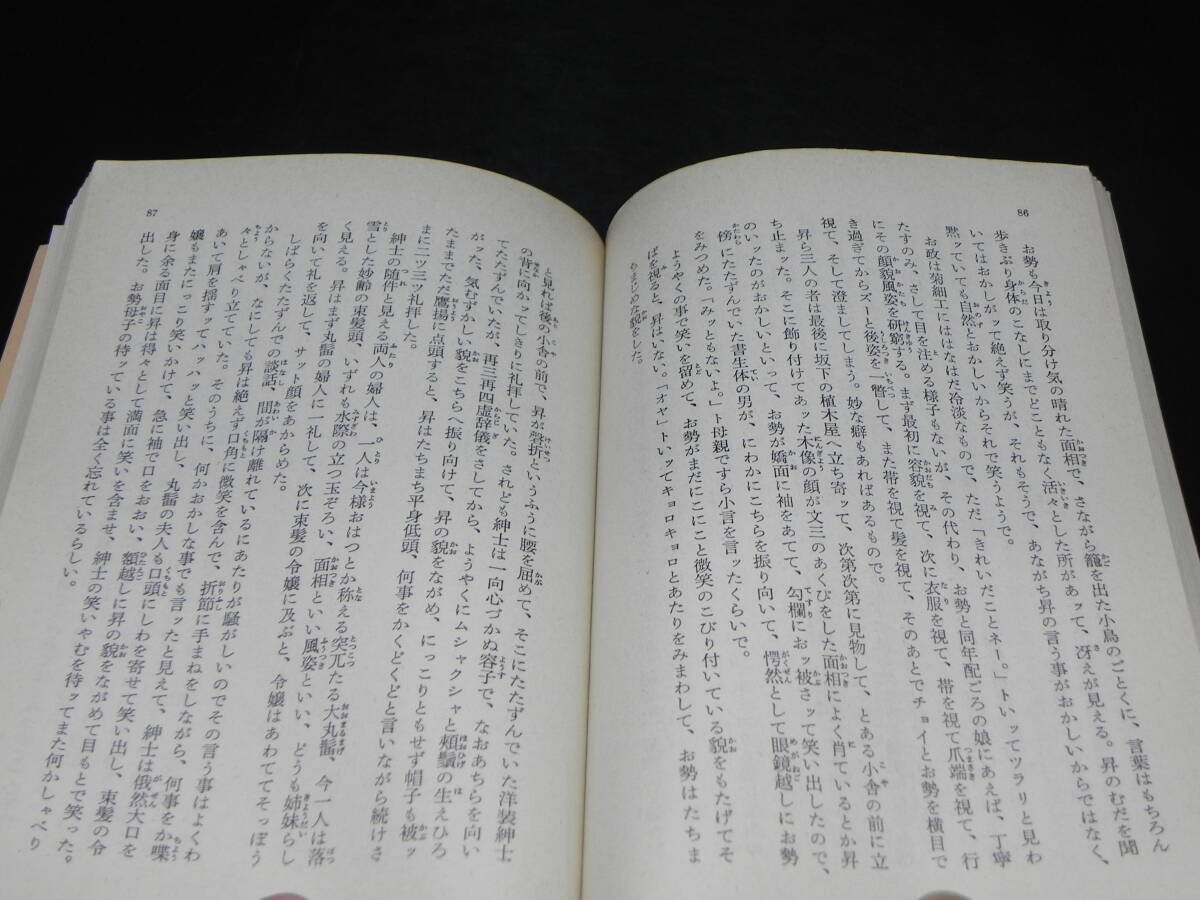 86
お勢も今日は取り分け気の晴れた面相で、さながら籠を出た小鳥のごとくに、言葉はもちろん
歩きぶり身体のこなしにまでどことなく活々とした所があって、冴えが見える。昇のむだを聞
いてはおかしがッて絶えず笑うが、それもそうで、あながち昇の言う事がおかしいからではなく、
黙ッていても自然とおかしいからそれで笑うようで。
お政は菊細工にははなはだ冷淡なもので、ただ「きれいだことネー。」トいッてツラリと見わ
たすのみ。さして目を注める様子もないが、その代わり、お勢と同年配ごろの娘にあえば、丁寧
にその顔貌風姿を研窮する。まず最初に容貌を視て、次に衣服を視て、帯を視て爪端を視て、行
き過ぎてからズーと後姿を一瞥して、また帯を視て髪を視て、そのあとでチョイとお勢を横目で
視て、そして澄ましてしまう。妙な癖もあればあるもので。
昇ら三人の者は最後に坂下の植木屋へ立ち寄ッて、次第次第に見物して、とある小舎の前に立
ち止まッた。そこに飾り付けてあッた木像の顔が文三のあくびをした面相によく肖ているとか昇
のいッたのがおかしいといって、お勢が嬌面に袖をあてて、勾欄におッ被さッて笑い出したので、
傍にたたずんでいた書生体の男が、にわかにこちらを振り向いて、愕然として眼鏡越しにお勢
をみつめた。「みッともないよ。」ト母親ですら小言を言ッたくらいで。
ようやくの事で笑いを留めて、お勢がまだにこにこと微笑のこびり付いている貌をもたげてそ
ばを視ると、昇はいない。「オヤ」トいッてキョロキョロとあたりをみまわして、お勢はたちま
ちまじめな貌をした。
87
と見れば後の小舎の前で、昇が磬折というふうに腰を屈めて、そこにたたずんでいた洋装紳士
の背に向かッてしきりに礼拝していた。されども紳士は一向心づかぬ容子で、なおあちらを向い
てたたずんでいたが、再三再四虚辞儀をさしてから、ようやくにムシャクシャと頬鬚の生えひろ
がッた、気むずかしい貌をこちらへ振り向けて、昇の貌をながめ、にっこりともせず帽子も被ッ
たままでただ鷹揚に点頭すると、昇はたちまち平身低頭、何事をかくどくどと言いながら続けさ
まに二ツ三ツ礼拝した。
紳士の随伴と見える両人の婦人は、一人は今様おはつとか称える突兀たる大丸髷、今一人は落
雪とした妙齢の束髪頭、いずれも水際の立つ玉ぞろい、面相といい風姿といい、どうも姉妹らし
く見える。昇はまず丸髷の婦人に一礼して、次に束髪の令嬢に及ぶと、令嬢はあわててそっぽう
を向いて礼を返して、サット顔をあからめた。
しばらくたたずんでの談話、間が隔け離れているにあたりが騒がしいのでその言う事はよくわ
からないが、なにしても昇は絶えず口角に微笑を含んで、折節に手まねをしながら、何事をか喋
々としゃべり立てていた。そのうちに、何かおかしな事でも言ッたと見えて、紳士は俄然大口を
あいて肩を揺すッてハッハッと笑い出し、丸髷の夫人も口頭にしわを寄せて笑い出し、束髪の令
嬢もまたにっこり笑いかけて、急に袖で口をおおい、額越しに昇の貌をながめて目もとで笑った。
身に余る面目に昇は得々として満面に笑いを含ませ、紳士の笑いやむを待ッてまた何かしゃべり
出した。お勢母子の待ッている事は全く忘れているらしい。